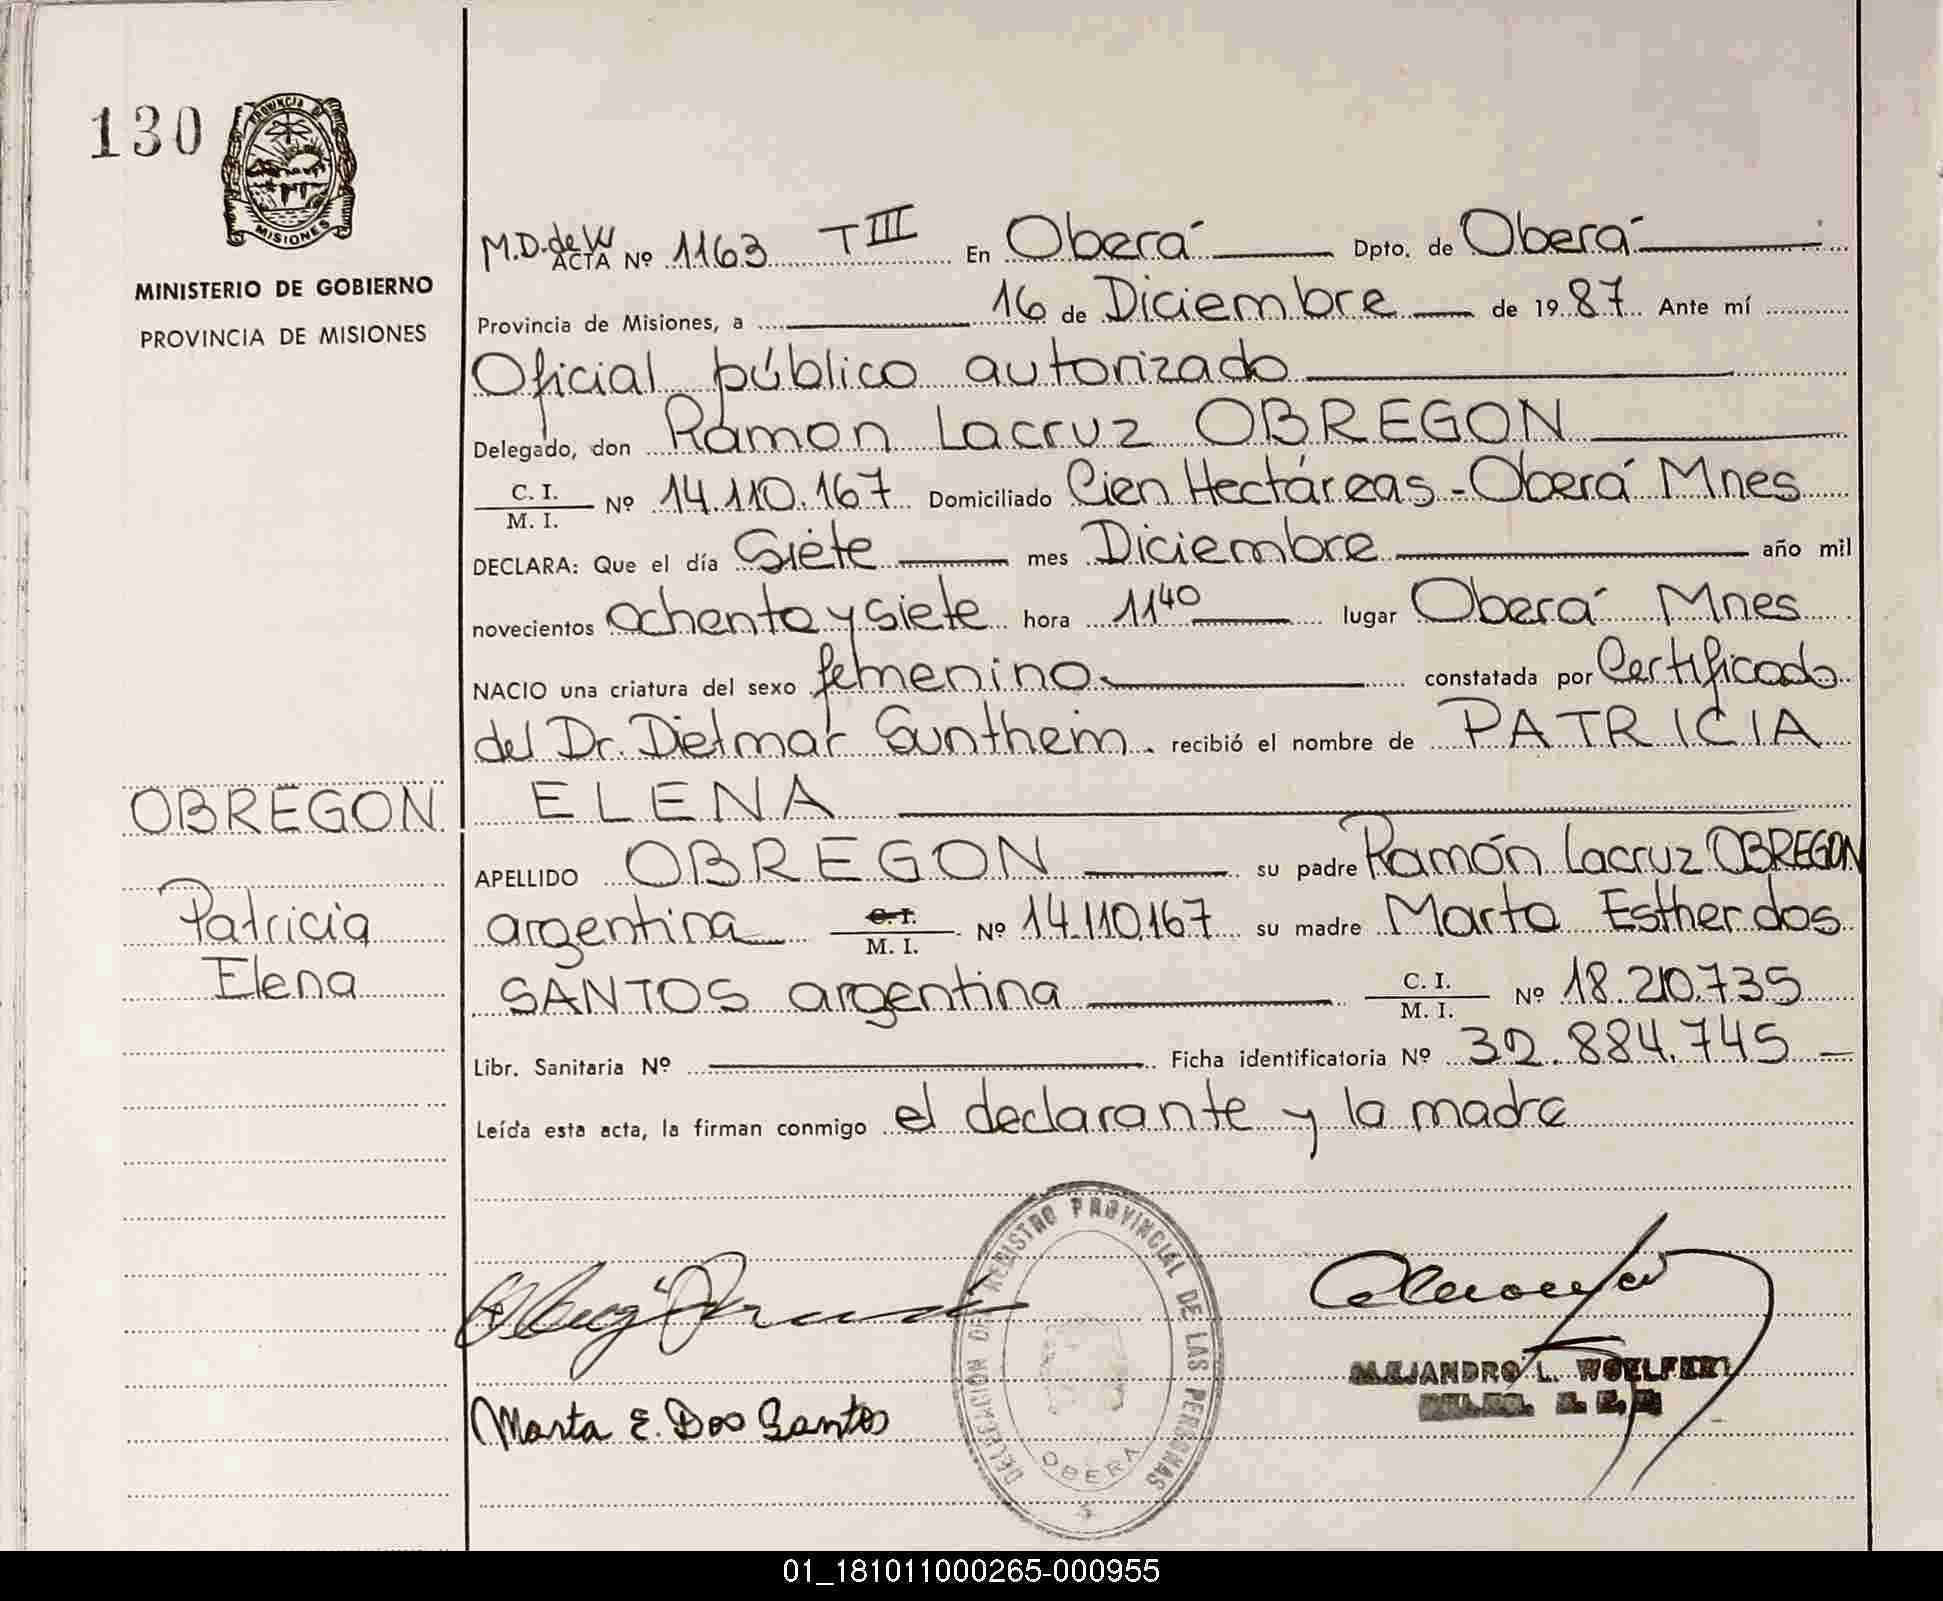 130
PROVINCIA DE
MISIONES
MINISTERIO DE GOBIERNO
PROVINCIA DE MISIONES
M.D. de W ACTA Nº 1163 T III En Oberá Dpto. de Oberá
Provincia de Misiones, a 16 de Diciembre de 1987 Ante mí
Oficial público autorizado
Delegado, don Ramon Lacruz OBREGON
C. I. / M. I. Nº 14.110.167 Domiciliado Cien Hectáreas - Oberá Mnes
DECLARA: Que el día Siete mes Diciembre año mil
novecientos ochenta y siete hora 11 40 lugar Oberá Mnes
NACIO una criatura del sexo femenino constatada por Certificado
del Dr. Dietmar Suntheim. recibió el nombre de PATRICIA
ELENA
APELLIDO OBREGON su padre Ramón Lacruz OBREGON
argentina C. I. / M. I. Nº 14.110.167 su madre Marta Esther dos
SANTOS argentina C. I. / M. I. Nº 18.210.735
Libr. Sanitaria Nº Ficha identificatoria Nº 32.884.745
Leída esta acta, la firman conmigo el declarante y la madre
OBREGON
Patricia
Elena
DELEGACION DEL REGISTRO PROVINCIAL DE LAS PERSONAS
OBERA
ALEJANDRO L.
Marta E. Dos Santos
01_181011000265-000955